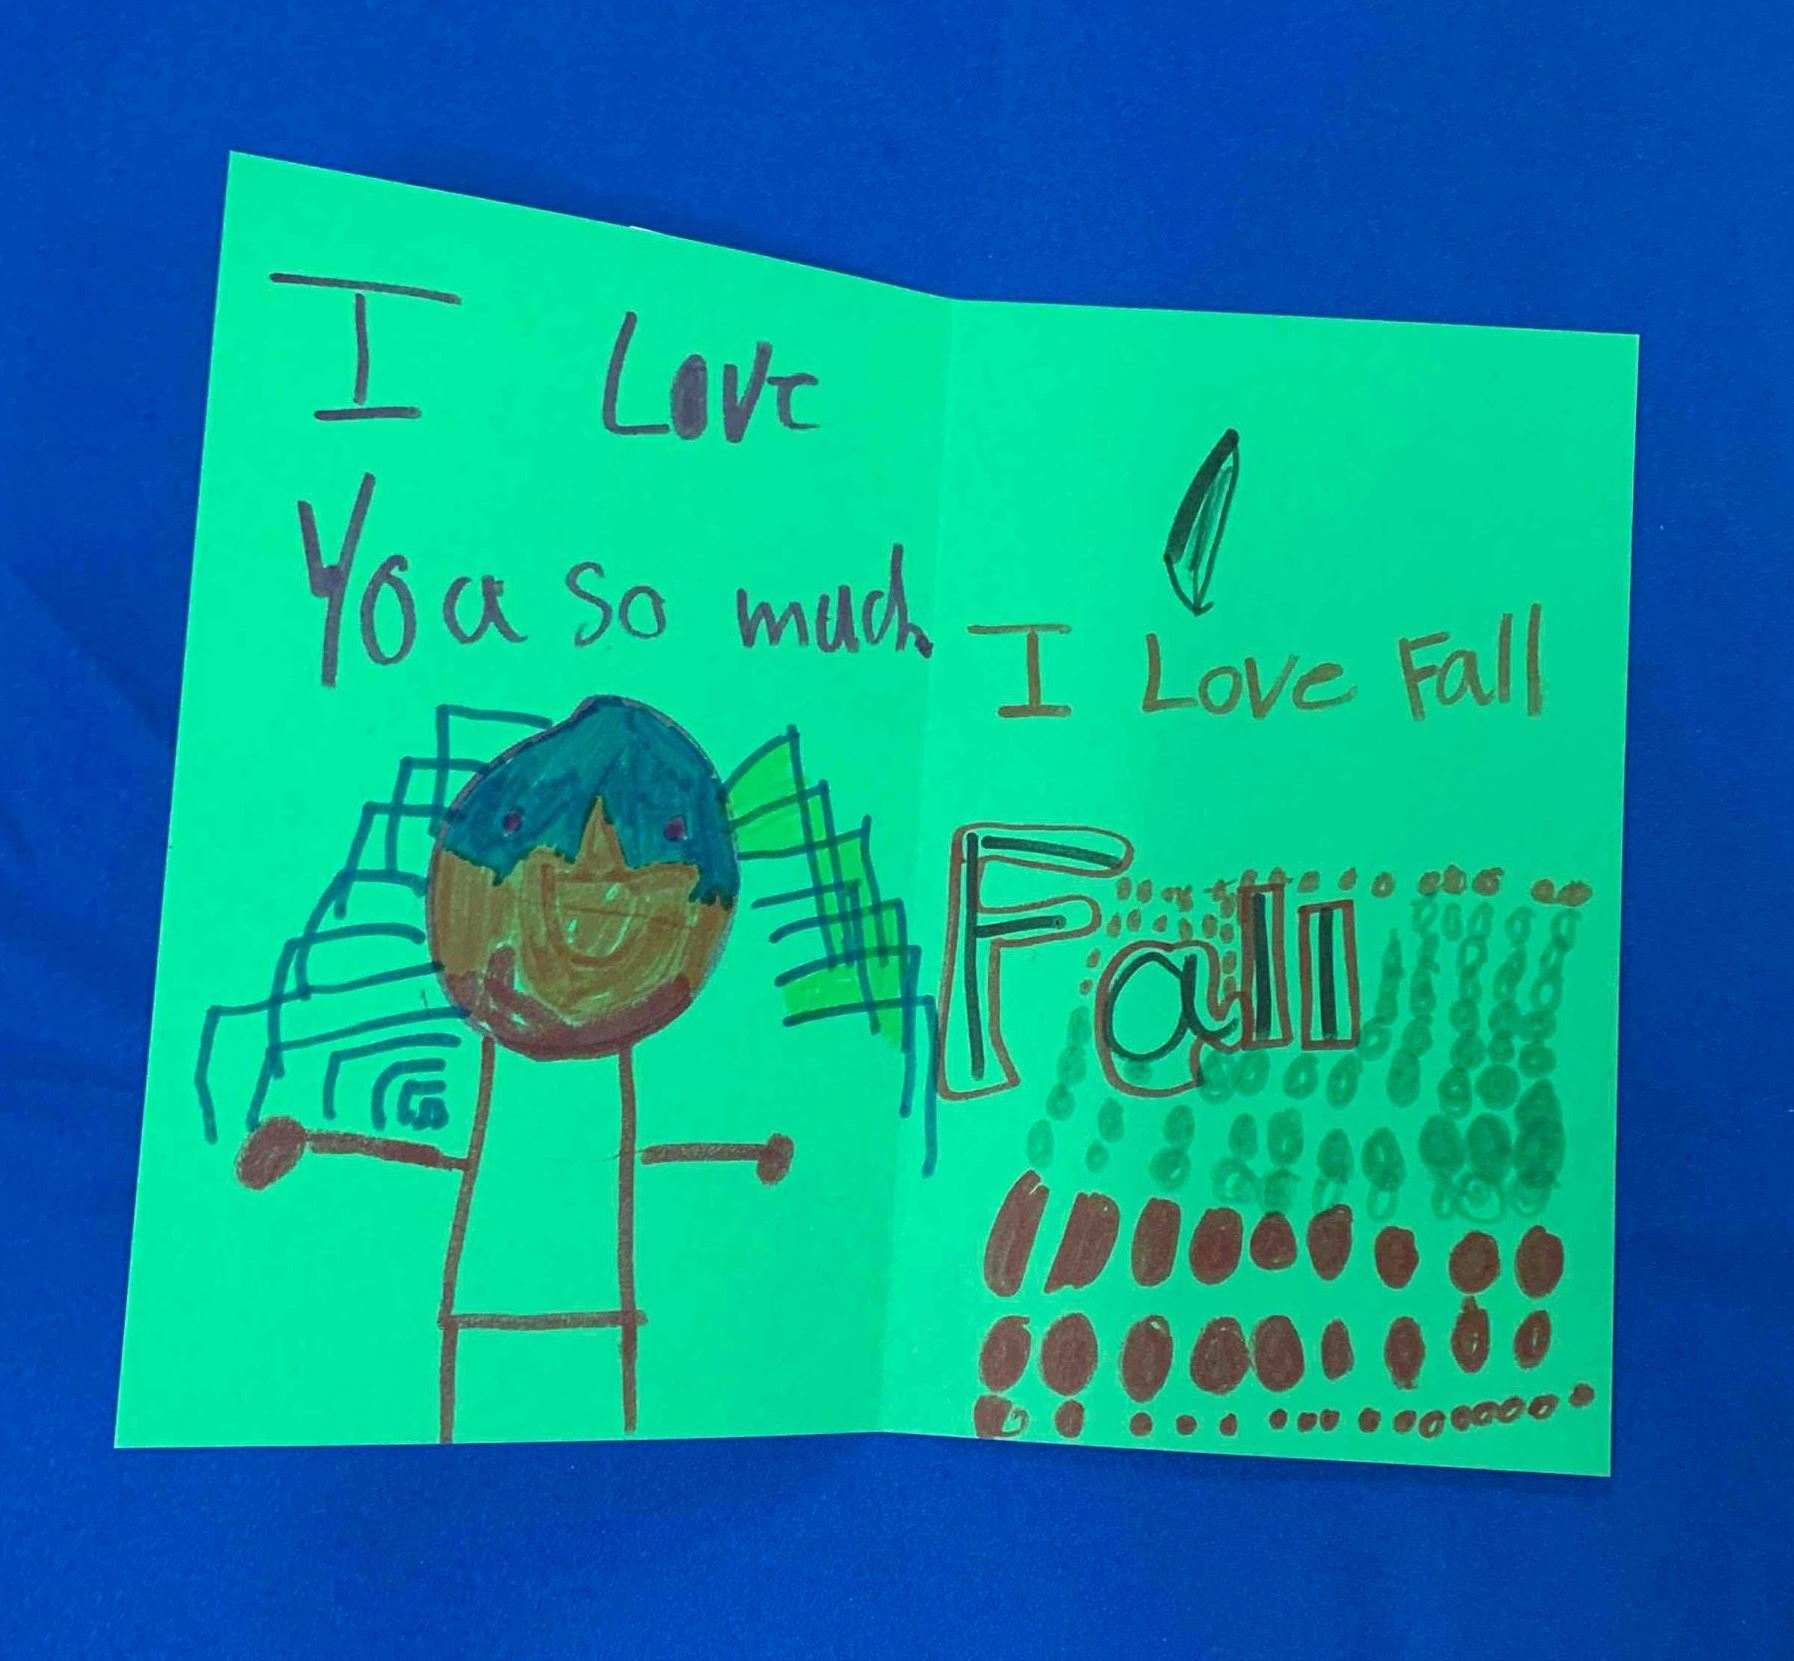 I Love
You so much
I Love Fall
Fall